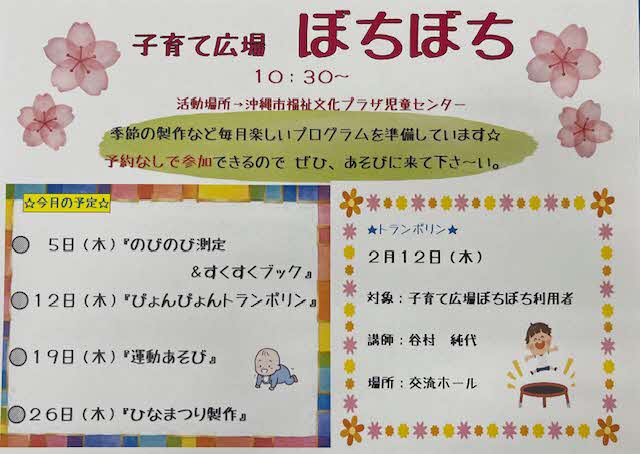 子育て広場 ぼちぼち
10：30～
活動場所→沖縄市福祉文化プラザ児童センター
季節の製作など毎月楽しいプログラムを準備しています☆
予約なしで参加できるので ぜひ、あそびに来て下さ～い。
☆今月の予定☆
5日（木）『のびのび測定
＆すくすくブック』
12日（木）『ぴょんぴょんトランポリン』
19日（木）『運動あそび』
26日（木）『ひなまつり製作』
★トランポリン★
2月12日（木）
対象：子育て広場ぼちぼち利用者
講師：谷村　純代
場所：交流ホール